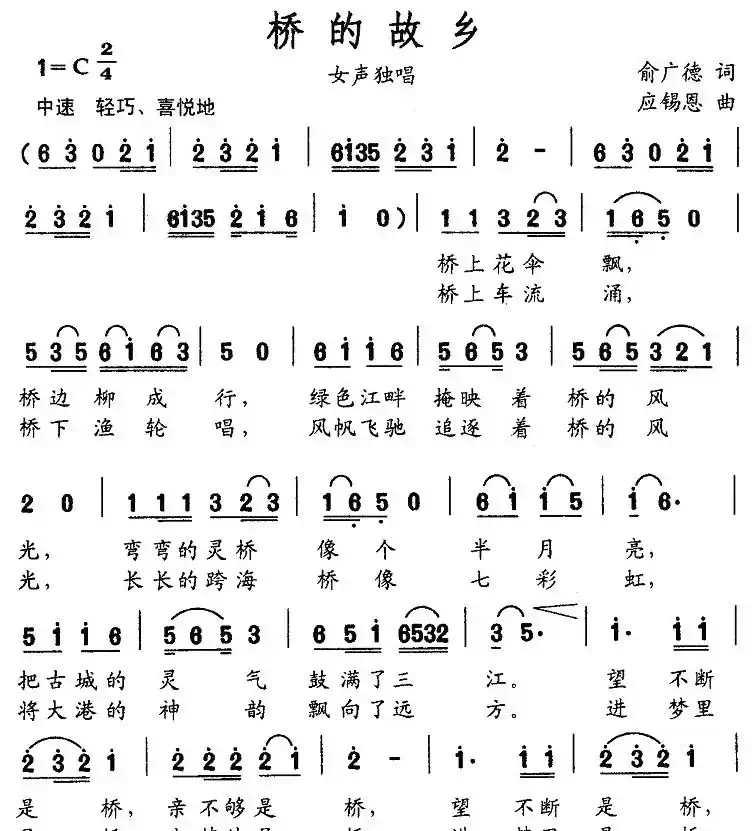 桥的故乡
1=C 2/4
女声独唱
俞广德 词
中速 轻巧、喜悦地
应锡恩 曲
(6 3 0 2 1 | 2 3 2 1 | 6135 2 3 1 | 2 - | 6 3 0 2 1 |
2 3 2 1 | 6135 2 1 6 | 1 0) | 1 1 3 2 3 | 1 6 5 0 |
桥上花伞 飘,
桥上车流 涌,
5 3 5 6 1 6 3 | 5 0 | 6 1 1 6 | 5 6 5 3 | 5 6 5 3 2 1 |
桥边柳成 行, 绿色江畔 掩映着 桥的风
桥下渔轮 唱, 风帆飞驰 追逐着 桥的风
2 0 | 1 1 1 3 2 3 | 1 6 5 0 | 6 1 1 5 | 1 6· |
光, 弯弯的灵桥 像个 半月 亮,
光, 长长的跨海 桥像 七彩 虹,
5 1 1 6 | 5 6 5 3 | 6 5 1 6532 | 3 5· | 1· 1 1 |
把古城的 灵气 鼓满了三 江。 望不断
将大港的 神韵 飘向了远 方。 进梦里
2 3 2 1 | 2 2 2 2 1 | 2 - | 1· 1 1 | 2 3 2 1 |
是桥, 亲不够是 桥, 望不断 是桥,